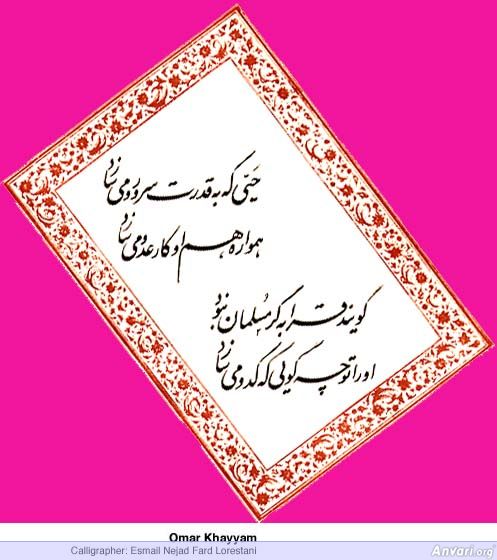 حیّی که به قدرت سر و رو می سازد
همواره هم او کار عدو می سازد
گویند قرابه گر مسلمان نبود
او را تو چه گویی که کدو می سازد
Omar Khayyam
Calligrapher: Esmail Nejad Fard Lorestani
Anvari.org